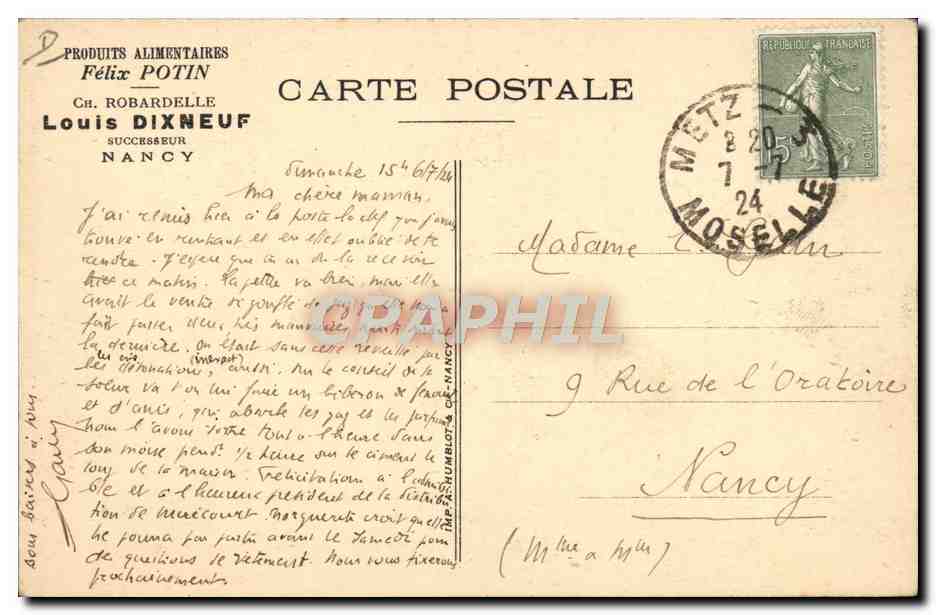 D
PRODUITS ALIMENTAIRES
Félix POTIN
CH. ROBARDELLE
Louis DIXNEUF
SUCCESSEUR
NANCY
CARTE POSTALE
REPUBLIQUE FRANÇAISE
POSTES
15c
METZ 3
8 20
7 - 7
24
MOSELLE
dimanche 15h 6/7/24
Ma chère maman,
J'ai remis hier à la poste la clef que j'avais
trouvé en rentrant et en effet oublié de te
rendre. J'espère que tu as dû la recevoir
ce matin. La petite va bien, mais elle
avait le ventre si gonflé de gaz qu'elle nous a
fait passer deux très mauvaises nuits
la dernière. On était sans cesse réveillé par
les cris,
les détonations, (inexact) aussi, sur le conseil de la
soeur va t'on lui faire un biberon de fenouil
et d'anis, qui absorbe les gaz et les parfume
nous l'avons sortie tout à l'heure dans
son moïse pendt 1/2 heure sur le ciment le
long de la maison. Félicitations à
et à l'heureux président de la distribu
tion de Mirecourt. Marguerite croit qu'elle
ne pourra pas partir avant le Samedi pour
des questions de vêtement. Nous vous fixerons
prochainement
bons baisers à tous
IMP. A. HUMBLOT & Cie - NANCY
Madame
9 Rue de l'Oratoire
Nancy
(Mme à Mlle)
CPAPHIL